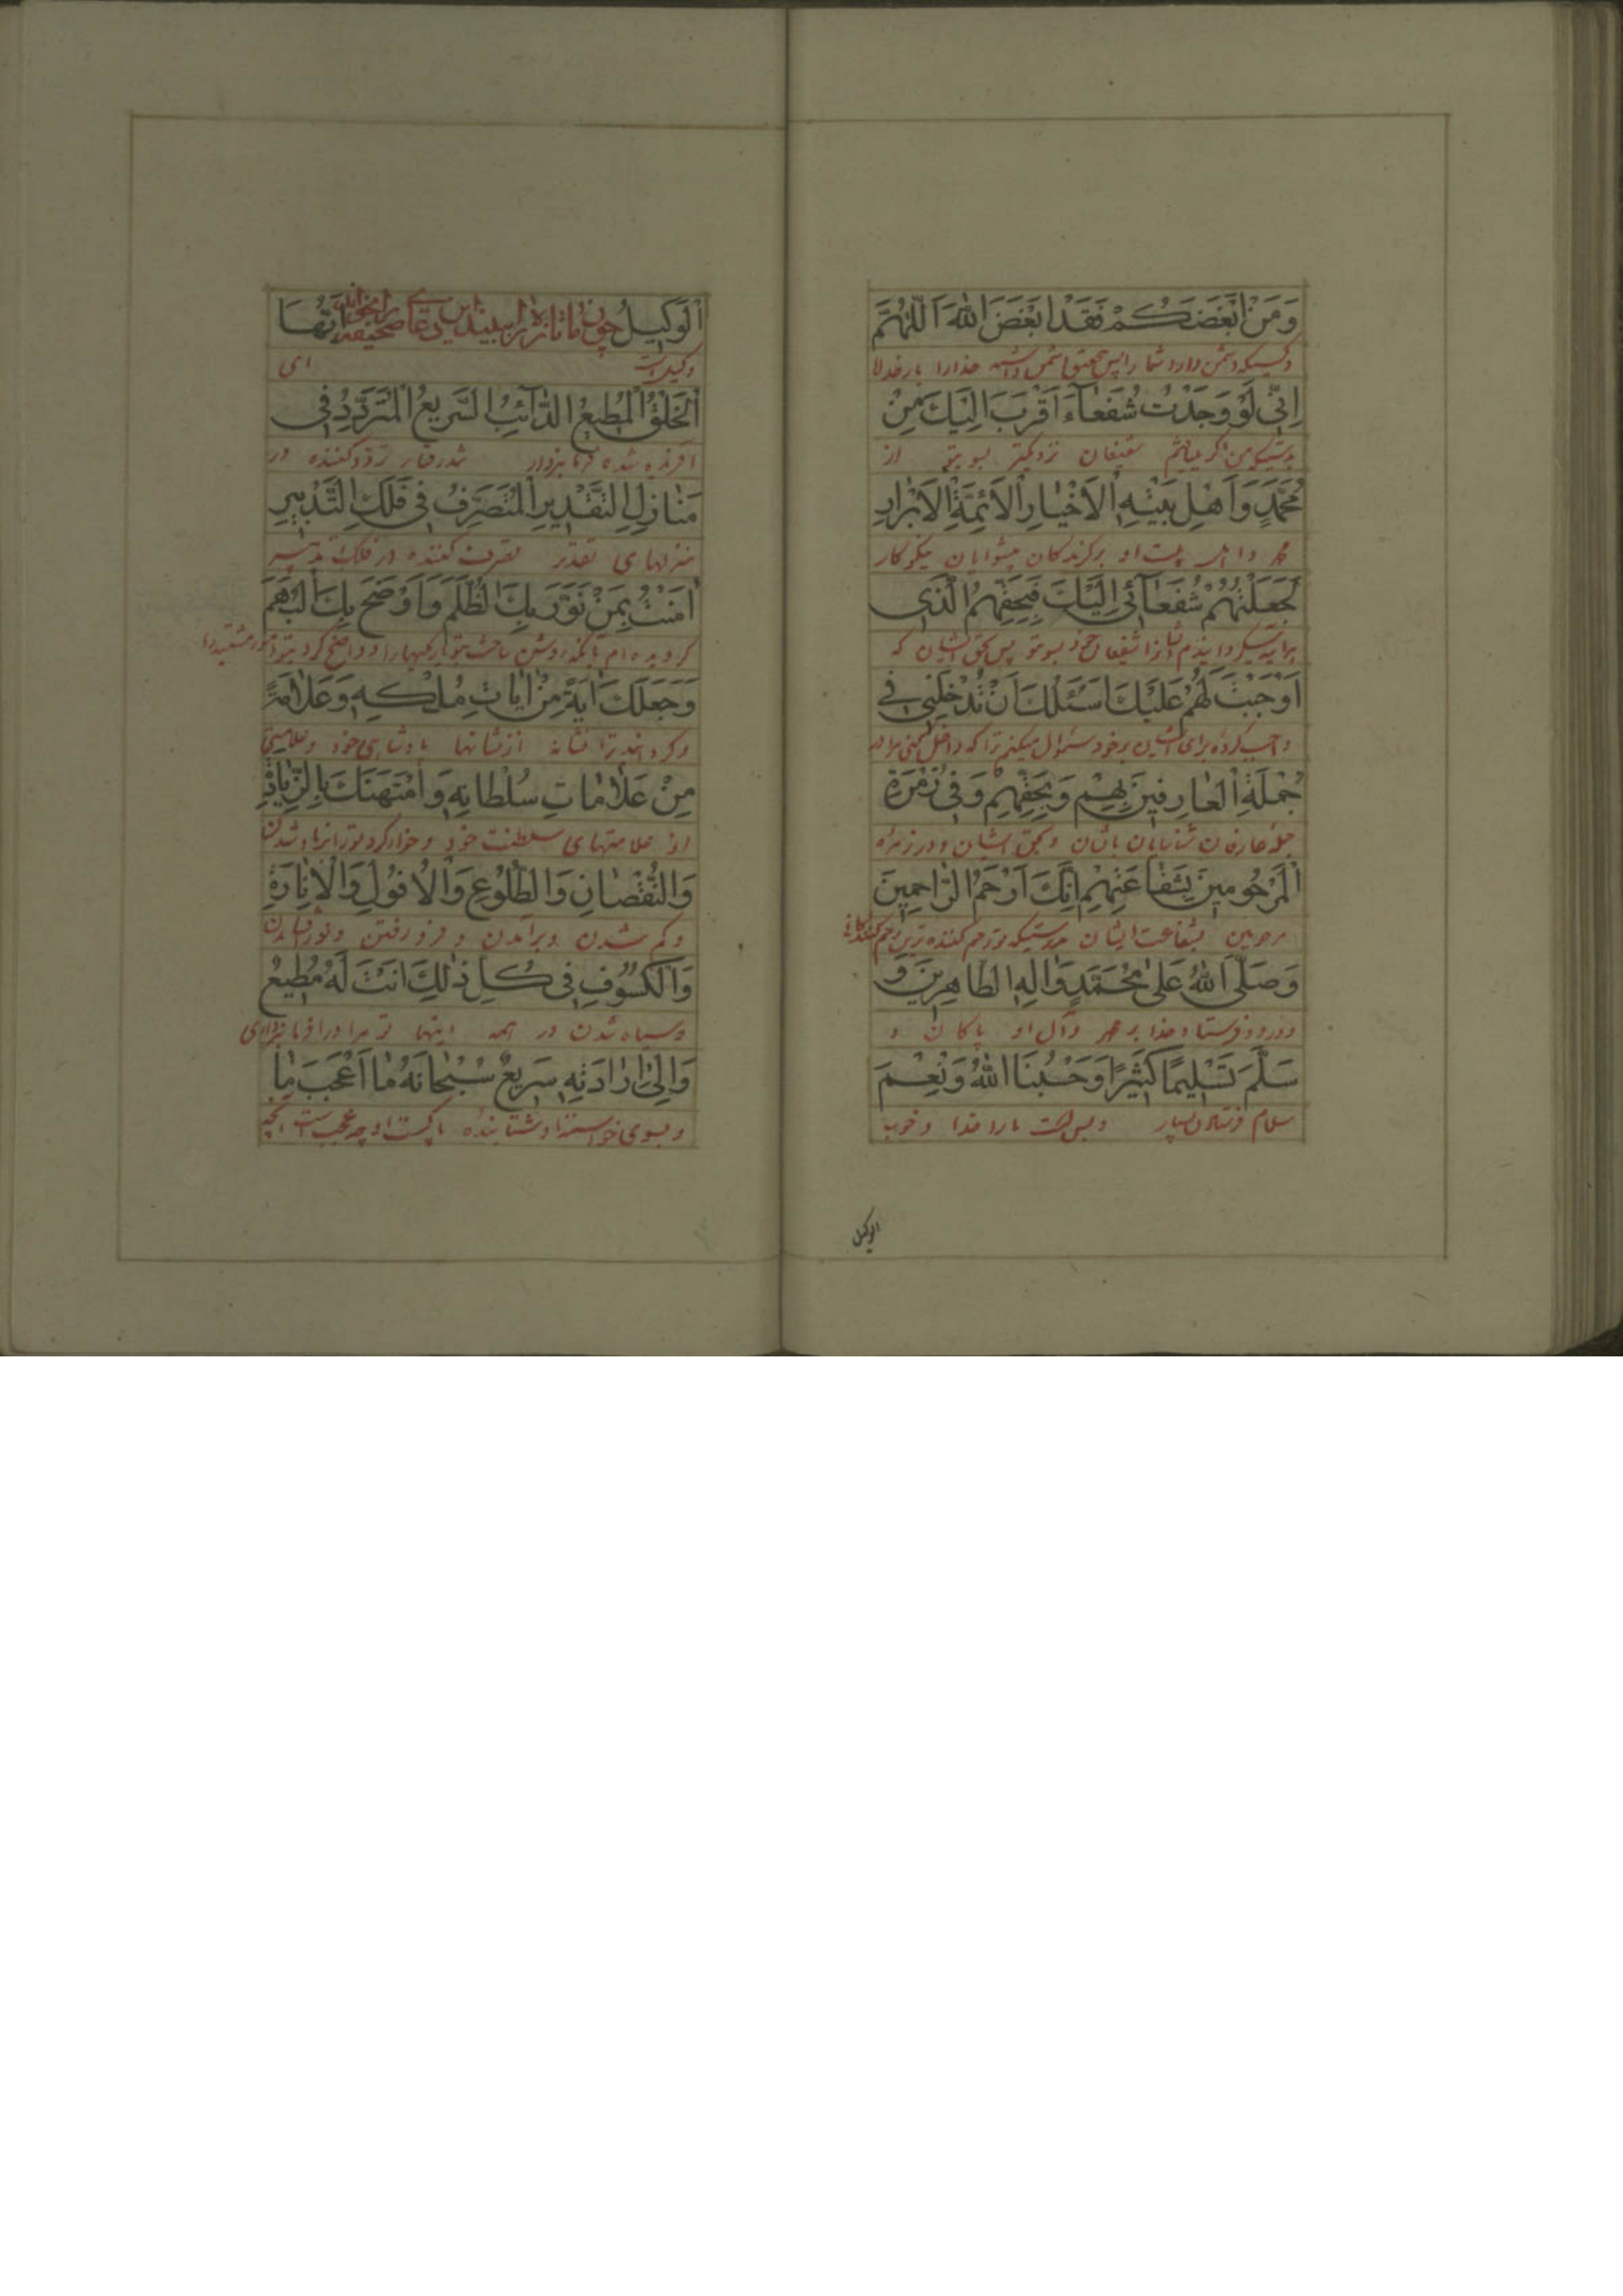 وَمَنْ اَبْغَضَكُمْ فَقَدْ اَبْغَضَ اللّٰهَ اَللّٰهُمَّ
وکسیکه دشمن دارد شما را پس بتحقیق دشمن داشته خدا را بار خدایا
اِنّی لَوْ وَجَدْتُ شُفَعٰآءَ اَقْرَبَ اِلَیْكَ مِنْ
بدرستیکه من اگر می‌یافتم شفیعان نزدیکتر بسوی تو از
مُحَمَّدٍ وَاَهْلِ بَیْتِهِ الْاَخْیٰارِ الْاَئِمَّةِ الْاَبْرٰارِ
محمد و اهل بیت او برگزیدگان پیشوایان نیکوکار
لَجَعَلْتُهُمْ شُفَعٰآئی اِلَیْكَ فَبِحَقِّهِمُ الَّذی
هراینه میگردانیدم ایشانرا شفیعان خود بسوی تو پس بحق ایشان که
اَوْجَبْتَ لَهُمْ عَلَیْكَ اَسْئَلُكَ اَنْ تُدْخِلَنی فی
واجب کرده برای ایشان بر خود سئوال میکنم ترا که داخل کنی مرا در
جُمْلَةِ الْعٰارِفینَ بِهِمْ وَبِحَقِّهِمْ وَفی زُمْرَةِ
جمله عارفان شناسایان بایشان و بحق ایشان و در زمره
الْمَرْحُومینَ بِشَفٰاعَتِهِمْ اِنَّكَ اَرْحَمُ الرّٰاحِمینَ
مرحومین بشفاعت ایشان بدرستیکه تو رحم کننده‌ترین رحم کنندگانی
وَصَلَّی اللّٰهُ عَلٰی مُحَمَّدٍ وَاٰلِهِ الطّٰاهِرینَ وَ
ودرود فرستاد خدا بر محمد وآل او پاکان و
سَلَّمَ تَسْلیمًا کَثیرًا وَحَسْبُنَا اللّٰهُ وَنِعْمَ
سلام فرستادن بسیار و بس است ما را خدا و خوب
الوکیل
اَلْوَکیلُ چون ماه تازه را ببیند این دعای صحیفه را بخواند اَیُّهَا
وکیلست ای
الْخَلْقُ الْمُطیعُ الدّٰآئِبُ السَّریعُ الْمُتَرَدِّدُ فی
آفریده شده فرمانبردار تندرفتار تردد کننده در
مَنٰازِلِ التَّقْدیرِ الْمُتَصَرِّفُ فی فَلَكِ التَّدْبیرِ
منزلهای تقدیر تصرف کننده در فلك تدبیر
اٰمَنْتُ بِمَنْ نَوَّرَ بِكَ الظُّلَمَ وَاَوْضَحَ بِكَ الْبُهَمَ
گرویده‌ام بآنکه روشن ساخت بتو تاریکیها را و واضح کرد بتو
وَجَعَلَكَ اٰیَةً مِنْ اٰیٰاتِ مُلْکِهِ وَعَلٰامَةً
وگردانید ترا نشانه از نشانها پادشاهی خود و علامتی
مِنْ عَلٰامٰاتِ سُلْطٰانِهِ وَامْتَهَنَكَ بِالزِّیٰادَةِ
از علامتهای سلطنت خود و خوار کرد تو را بزیاد شدن
وَالنُّقْصٰانِ وَالطُّلُوعِ وَالْاُفُولِ وَالْاِنٰارَةِ
و کم شدن و برآمدن و فرو رفتن و نور
وَالْکُسُوفِ فی کُلِّ ذٰلِكَ اَنْتَ لَهُ مُطیعٌ
وسیاه شدن در همه اینها تو مر او را فرمانبرداری
وَاِلٰی اِرٰادَتِهِ سَریعٌ سُبْحٰانَهُ مٰا اَعْجَبَ مٰا
وبسوی خواستن او شتابنده پاکست او چه عجب است آنچه